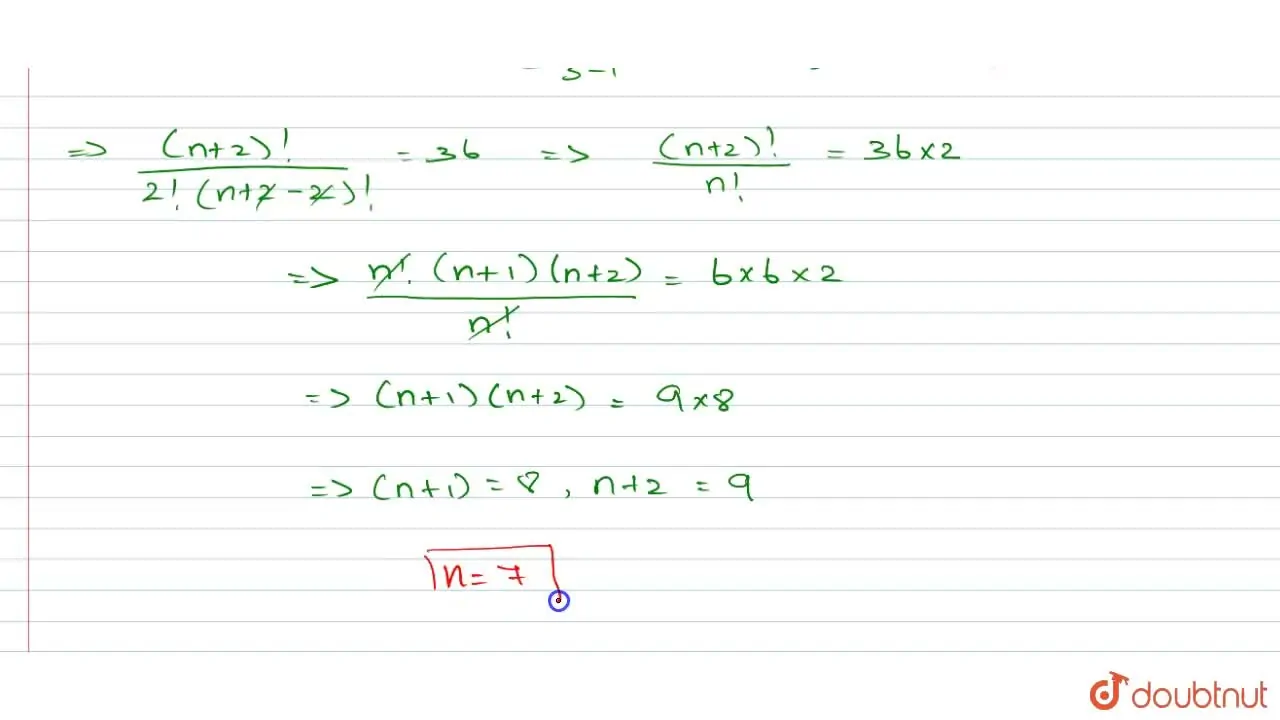 3-1 =
=> (n+2)! / 2! (n+2-2)! = 36 => (n+2)! / n! = 36 x 2
=> n! (n+1)(n+2) / n! = 6x6x2
=> (n+1)(n+2) = 9x8
=> (n+1) = 8, n+2 = 9
n = 7
doubtnut